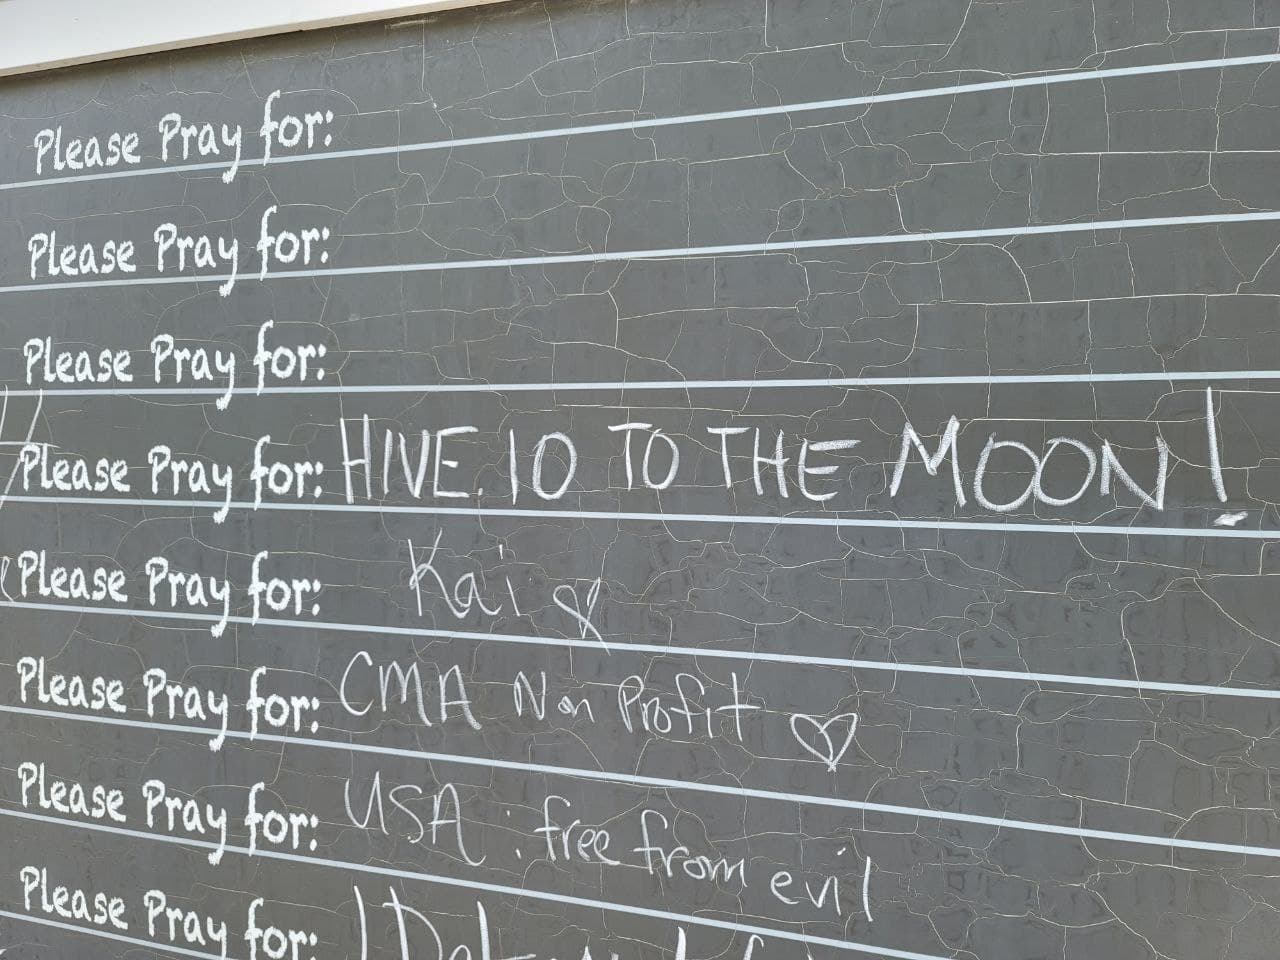 Please Pray for:
Please Pray for:
Please Pray for:
Please Pray for: HIVE.IO TO THE MOON!
Please Pray for: Kai
Please Pray for: CMA Non Profit
Please Pray for: USA : free from evil
Please Pray for: